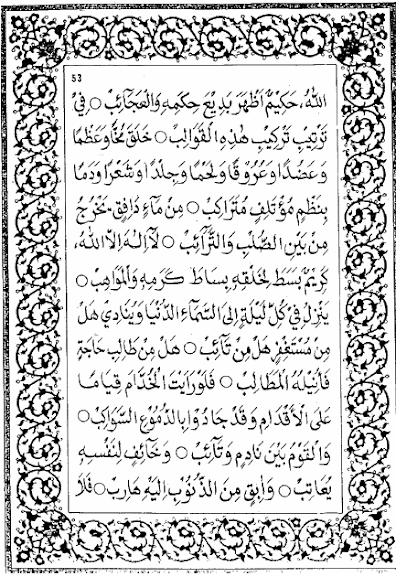 53
اَللهُ، حَكِيْمٌ اَظْهَرَ بَدِيْعَ حِكَمِهٖ وَالْعَجَائِبْ ○ فِيْ
تَرْتِيْبِ تَرْكِيْبِ هٰذِهِ الْقَوَالِبْ ○ خَلَقَ مُخًّا وَعَظْمًا
وَعَضُدًا وَعُرُوْقًا وَلَحْمًا وَجِلْدًا وَشَعْرًا وَدَمًا
بِنَظْمِ مُؤْتَلِفٍ مُتَرَاكِبْ ○ مِنْ مَاءٍ دَافِقٍ، يَخْرُجُ
مِنْ بَيْنِ الصُّلْبِ وَالتَّرَآئِبْ ○ لَآاِلٰهَ اِلَّا اللهُ،
كَرِيْمٌ بَسَطَ لِخَلْقِهٖ بِسَاطَ كَرَمِهٖ وَالْمَوَاهِبْ ○
يَنْزِلُ فِيْ كُلِّ لَيْلَةٍ اِلَى السَّمَاءِ الدُّنْيَا وَيُنَادِيْ هَلْ
مِنْ مُسْتَغْفِرٍ هَلْ مِنْ تَآئِبْ ○ هَلْ مِنْ طَالِبِ حَاجَةٍ
فَاُنِيْلُهُ الْمَطَالِبْ ○ فَلَوْ رَاَيْتَ الْخُدَّامَ قِيَامًا
عَلَى الْاَقْدَامِ وَقَدْ جَادُوْا بِالدُّمُوْعِ السَّوَاكِبْ ○
وَالْقَوْمُ بَيْنَ نَادِمٍ وَتَآئِبْ ○ وَخَآئِفٍ لِنَفْسِهٖ
يُعَاتِبْ ○ وَاٰبِقٍ مِنَ الذُّنُوْبِ اِلَيْهِ هَارِبْ ○ فَلَا